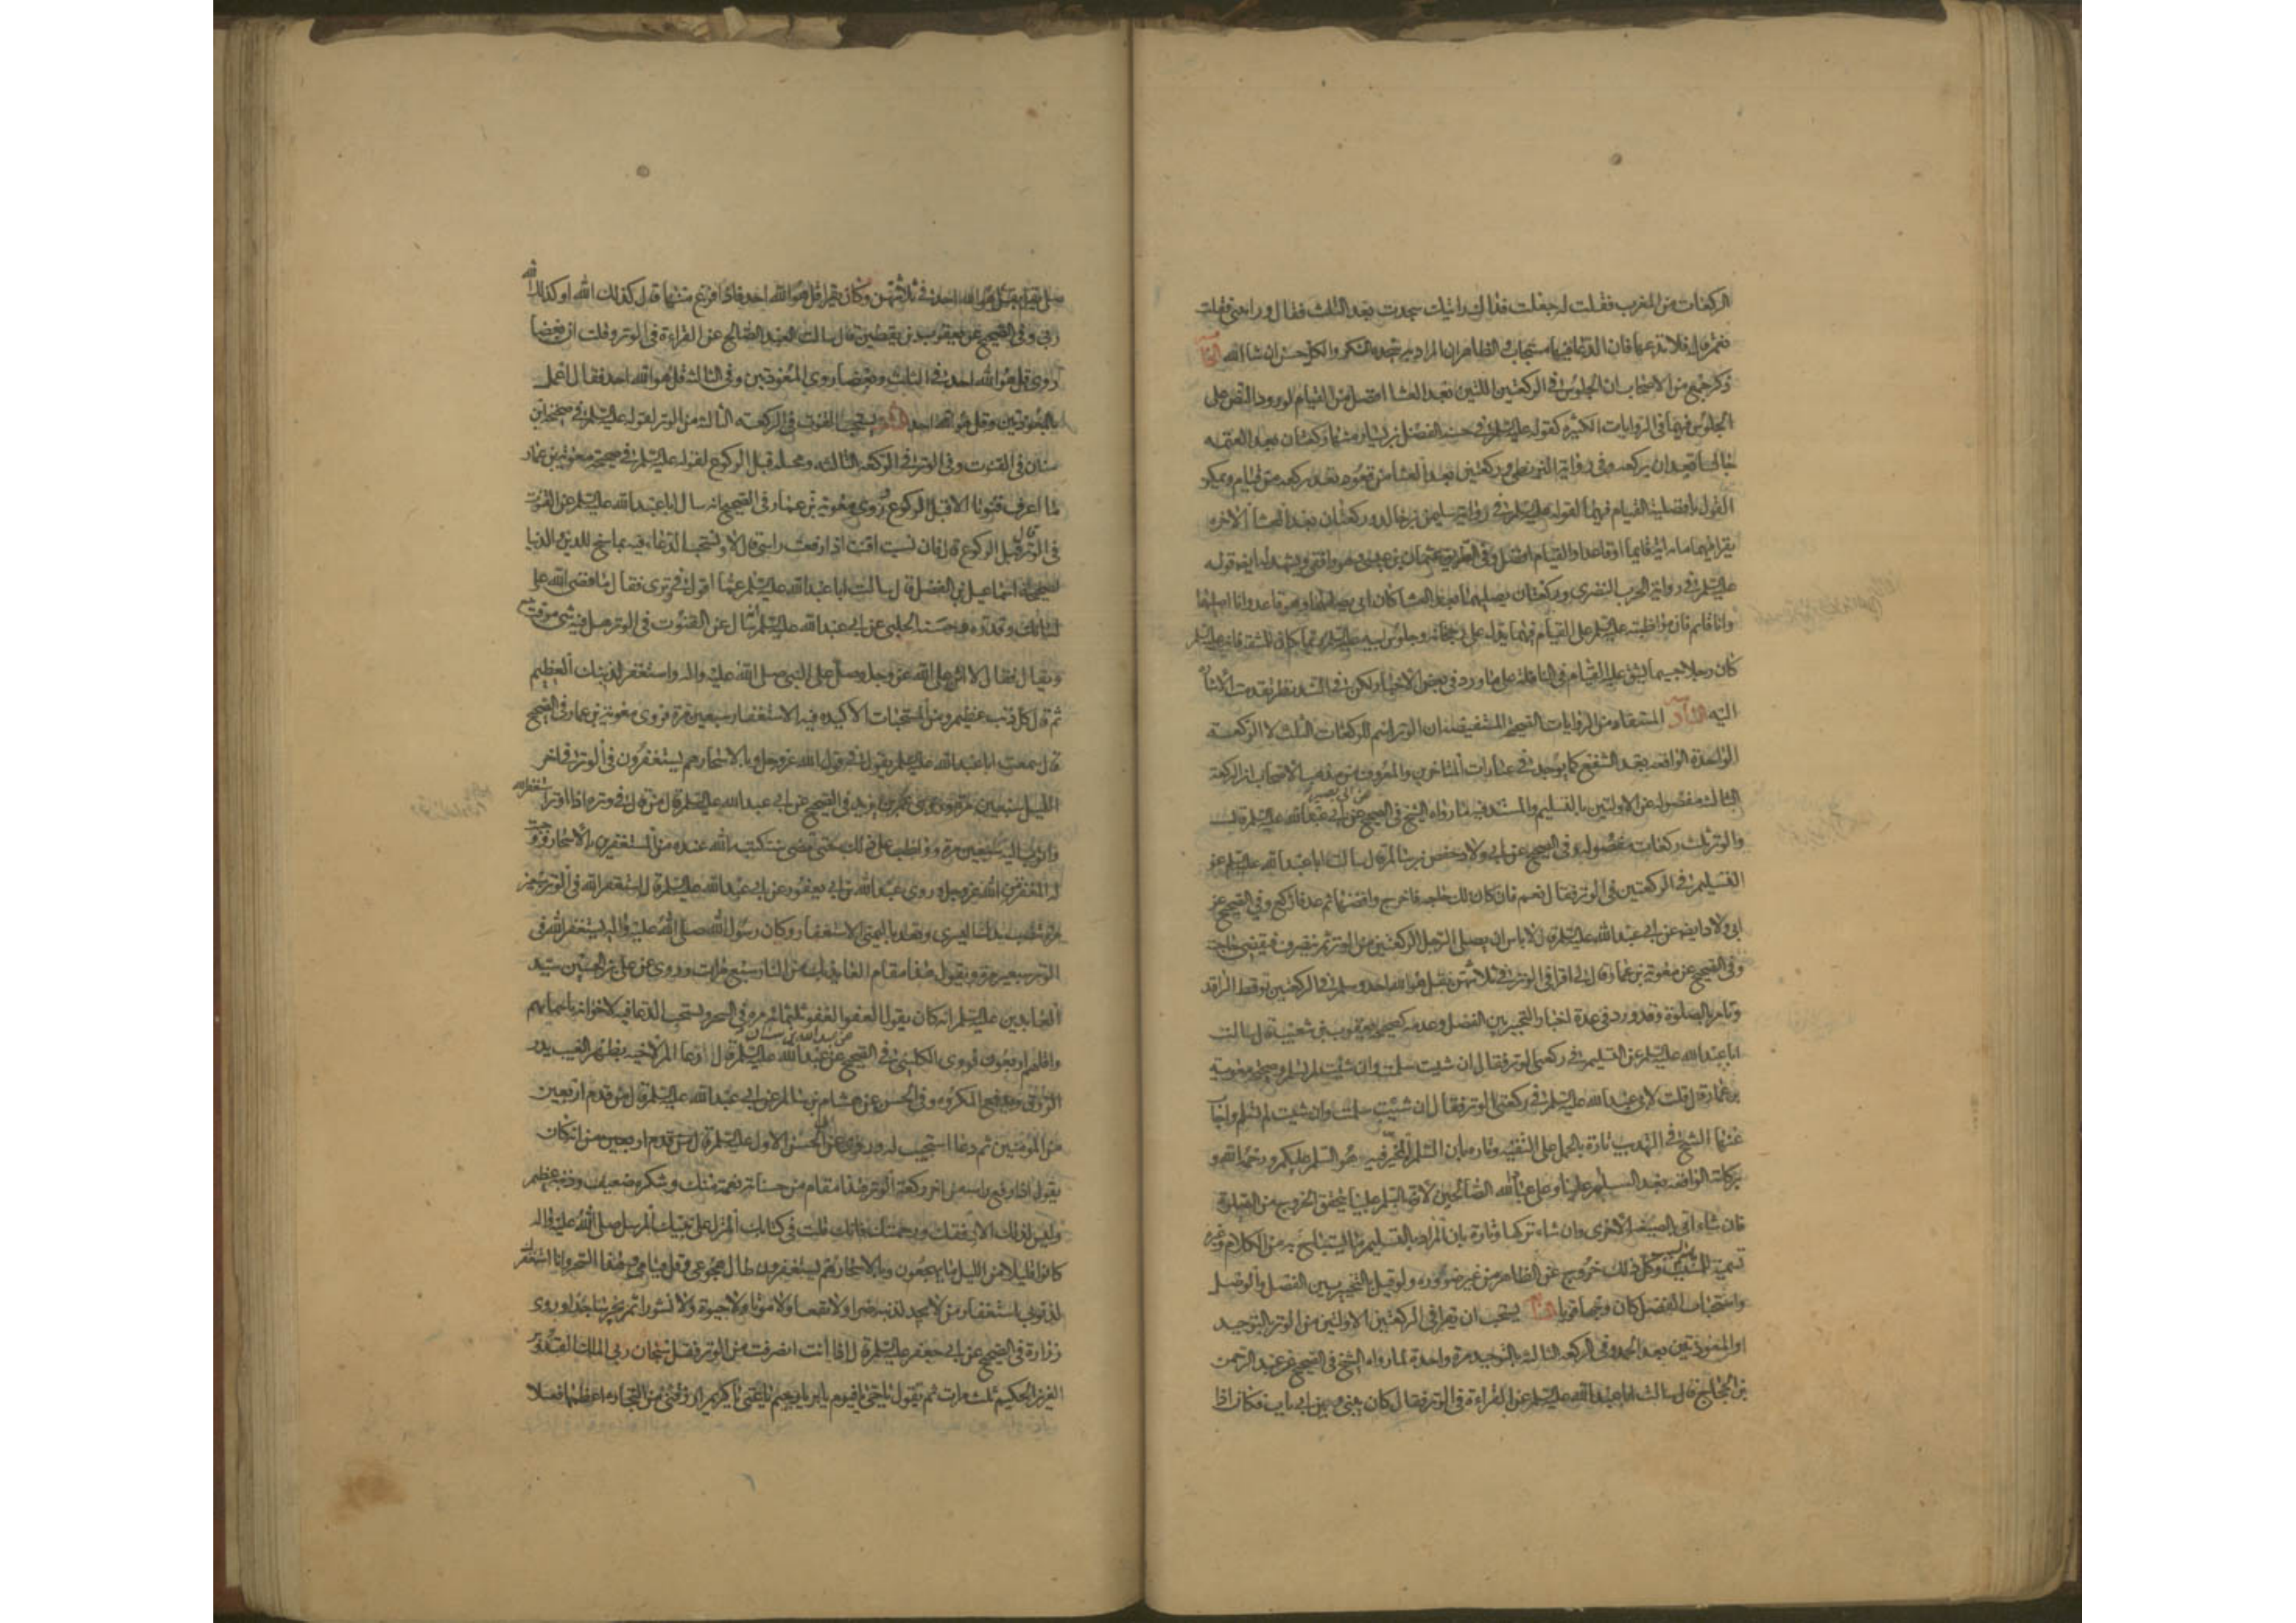 الركعات من المغرب فقلت له جعلت فداك رايتك سجدت بعد الثلث فقال ورايتني فقلت
نعم قال فلا تدعها فان الدعا فيها مستجاب والظاهر ان المراد به سجدة الشكر والكل حسن ان شا الله
ذكر جمع من الاصحاب ان الجلوس في الركعتين اللتين بعد العشا افضل من القيام لورود النص على
الجلوس فيهما في الروايات الكثيرة كقوله عليه السلم في حسنة الفضيل بن يسار منها ركعتان بعد العتمه
جالسا تعدان بركعه وفي رواية البزنطي وركعتين بعد العشا من قعود تعد بركعه من قيام ويمكن
القول بافضلية القيام فيهما لقوله عليه السلم في رواية سليمن بن خالد وركعتان بعد العشا الاخره
يقرا فيهما مائة اية قايما او قاعدا والقيام افضل وفي الطريق عثمان بن عيسى وهو واقفي ويشهد له ايضا قوله
عليه السلم في رواية الحرث النضري وركعتان بعد العشا كان ابي يصليهما وهو قاعد وانا اصليهما
وانا قايم فان مواظبته عليه السلم على القيام فيهما يدل على رجحانه وجلوس ابيه عليه السلم انما كان للمشقة فانه عليه السلم
كان رجلا جسيما يشق عليه القيام في النافلة على ما ورد في بعض الاخبار ولكن في السند نظر تقدمت الاشارة
اليه المستفاد من الروايات الصحيحة المستفيضه ان الوتر اسم للركعات الثلث لا الركعه
الواحدة الواقعه بعد الشفع كما يوجد في عبارات المتاخرين والمعروف من مذهب الاصحاب ان الركعة
الثالثه مفصوله عن الاولتين بالتسليم والمستند فيه ما رواه الشيخ في الصحيح عن ابي بصير عن ابي عبد الله عليه السلم قال
والوتر ثلث ركعات مفصوله وفي الصحيح عن ابي ولاد حفص بن سالم قال سالت ابا عبد الله عليه السلم عن
التسليم في الركعتين في الوتر فقال نعم فان كان لك حاجه فاخرج واقضها ثم عد فاركع وفي الصحيح عن
ابي ولاد ايضا عن ابي عبد الله عليه السلم قال لا باس ان يصلي الرجل الركعتين من الوتر ثم ينصرف فيقضي حاجته
وفي الصحيح عن معوية بن عمار قال قال لي اقرا في الوتر في ثلاثتهن بقل هو الله احد وسلم في الركعتين توقظ الراقد
وتامر بالصلوة وقد ورد في عدة اخبار التخيير بين الفصل وعدمه كصحيحة يعقوب بن شعيب قال سالت
ابا عبد الله عليه السلم عن التسليم في ركعتي الوتر فقال ان شيت سلمت وان شيت لم تسلم وصحيحة معوية
بن عمار قال قلت لابي عبد الله عليه السلم في ركعتي الوتر فقال ان شيت سلمت وان شيت لم تسلم واجاب
عنها الشيخ في التهذيب تارة بالحمل على التقيه وتارة بان السلم المخير فيه هو السلم عليكم ورحمة الله و
بركاته الواقعه بعد السلم علينا وعلى عباد الله الصالحين لان السلم علينا يتحقق الخروج من الصلوة
فان شاء اتى بالصيغه الاخرى وان شاء تركها وتارة بان المراد بالتسليم ما يستباح به من الكلام وغيره
تسمية للمسبب وكل ذلك خروج عن الظاهر من غير ضروره ولو قيل بالتخيير بين الفصل والوصل
واستحباب الفصل كان وجها قويا يستحب ان يقرا في الركعتين الاولتين من الوتر بالتوحيد
او المعوذتين بعد الحمد وفي الركعه الثالثه بالتوحيد مرة واحدة لما رواه الشيخ في الصحيح عن عبد الرحمن
بن الحجاج قال سالت ابا عبد الله عليه السلم عن القراءة في الوتر فقال كان بيني وبين ابي باب فكان اذا
صلى يقرا بقل هو الله احد في ثلاثتهن وكان يقرا قل هو الله احد فاذا فرغ منها قال كذلك الله او كذلك الله
ربي وفي الصحيح عن يعقوب بن يقطين قال سالت العبد الصالح عن القراءة في الوتر وقلت ان بعضا
روى قل هو الله احد في الثلث وبعضا روى المعوذتين وفي الثالثه قل هو الله احد فقال اعمل
بالمعوذتين وقل هو الله احد يستحب القنوت في الركعه الثالثه من الوتر لقوله عليه السلم في صحيحة ابن
سنان في القنوت وفي الوتر في الركعه الثالثه ومحله قبل الركوع لقوله عليه السلم في صحيحة معوية بن عمار
ما اعرف قنوتا الا قبل الركوع وروى معوية بن عمار في الصحيح انه سال ابا عبد الله عليه السلم عن القنوت
في الوتر قال قبل الركوع قال فان نسيت اقنت اذا رفعت راسي قال لا ويستحب الدعاء فيه بما سنح للدين والدنيا
لصحيحة اسماعيل بن الفضل قال سالت ابا عبد الله عليه السلم عما اقول في وتري فقال ما قضى الله على
لسانك وقدره وحسنة الحلبي عن ابي عبد الله عليه السلم انه سال عن القنوت في الوتر هل فيه شي موقت يتبع
ويقال فقال لا اثن على الله عز وجل وصل على النبي صلى الله عليه واله واستغفر لذنبك العظيم
ثم قال كل ذنب عظيم ومن المستحبات الاكيده فيه الاستغفار سبعين مرة فروى معوية بن عمار في الصحيح
قال سمعت ابا عبد الله عليه السلم يقول في قول الله عز وجل وبالاسحار هم يستغفرون في الوتر في اخر
الليل سبعين مرة وروى عمر بن يزيد في الصحيح عن ابي عبد الله عليه السلم قال من قال في وتره اذا اوتر استغفر الله
واتوب اليه سبعين مرة وواظب على ذلك حتى تمضي سنة كتبه الله عنده من المستغفرين بالاسحار ووجبت
له المغفرة من الله عز وجل وروى عبد الله بن ابي يعفور عن ابي عبد الله عليه السلم قال استغفر الله في الوتر سبعين
مرة تنصب يدك اليسرى وتعد باليمنى الاستغفار وكان رسول الله صلى الله عليه واله يستغفر الله في
الوتر سبعين مرة ويقول هذا مقام العايذ بك من النار سبع مرات وروى عن علي بن الحسين سيد
العابدين عليه السلم انه كان يقول العفو العفو ثلثمائة مرة في السحر ويستحب الدعا فيه لاخوانه باسمايهم
واقلهم اربعون لروى الكليني في الصحيح عن عبد الله بن سنان عن ابي عبد الله عليه السلم قال دعا المرء لاخيه بظهر الغيب يدر
الرزق ويدفع المكروه وفي الحسن عن هشام بن سالم عن ابي عبد الله عليه السلم قال من قدم اربعين
من المومنين ثم دعا استجيب له وروى عن ابي الحسن الاول عليه السلم انه كان
يقول اذا رفع راسه من اخر ركعة الوتر هذا مقام من حسناته نعمة منك وشكره ضعيف وذنبه عظيم
وليس لذلك الا رفقك ورحمتك فانك قلت في كتابك المنزل على نبيك المرسل صلى الله عليه واله
كانوا قليلا من الليل ما يهجعون وبالاسحار هم يستغفرون طال هجوعي وقل قيامي وهذا السحر وانا استغفرك
لذنوبي استغفار من لا يجد لنفسه ضرا ولا نفعا ولا موتا ولا حيوة ولا نشورا ثم يخر ساجدا وروى
زرارة في الصحيح عن ابي جعفر عليه السلم قال اذا انت انصرفت من الوتر فقل سبحان ربي الملك القدوس
العزيز الحكيم ثلث مرات ثم تقول يا حي يا قيوم يا بر يا رحيم يا غني يا كريم ارزقني من التجارة اعظمها فضلا